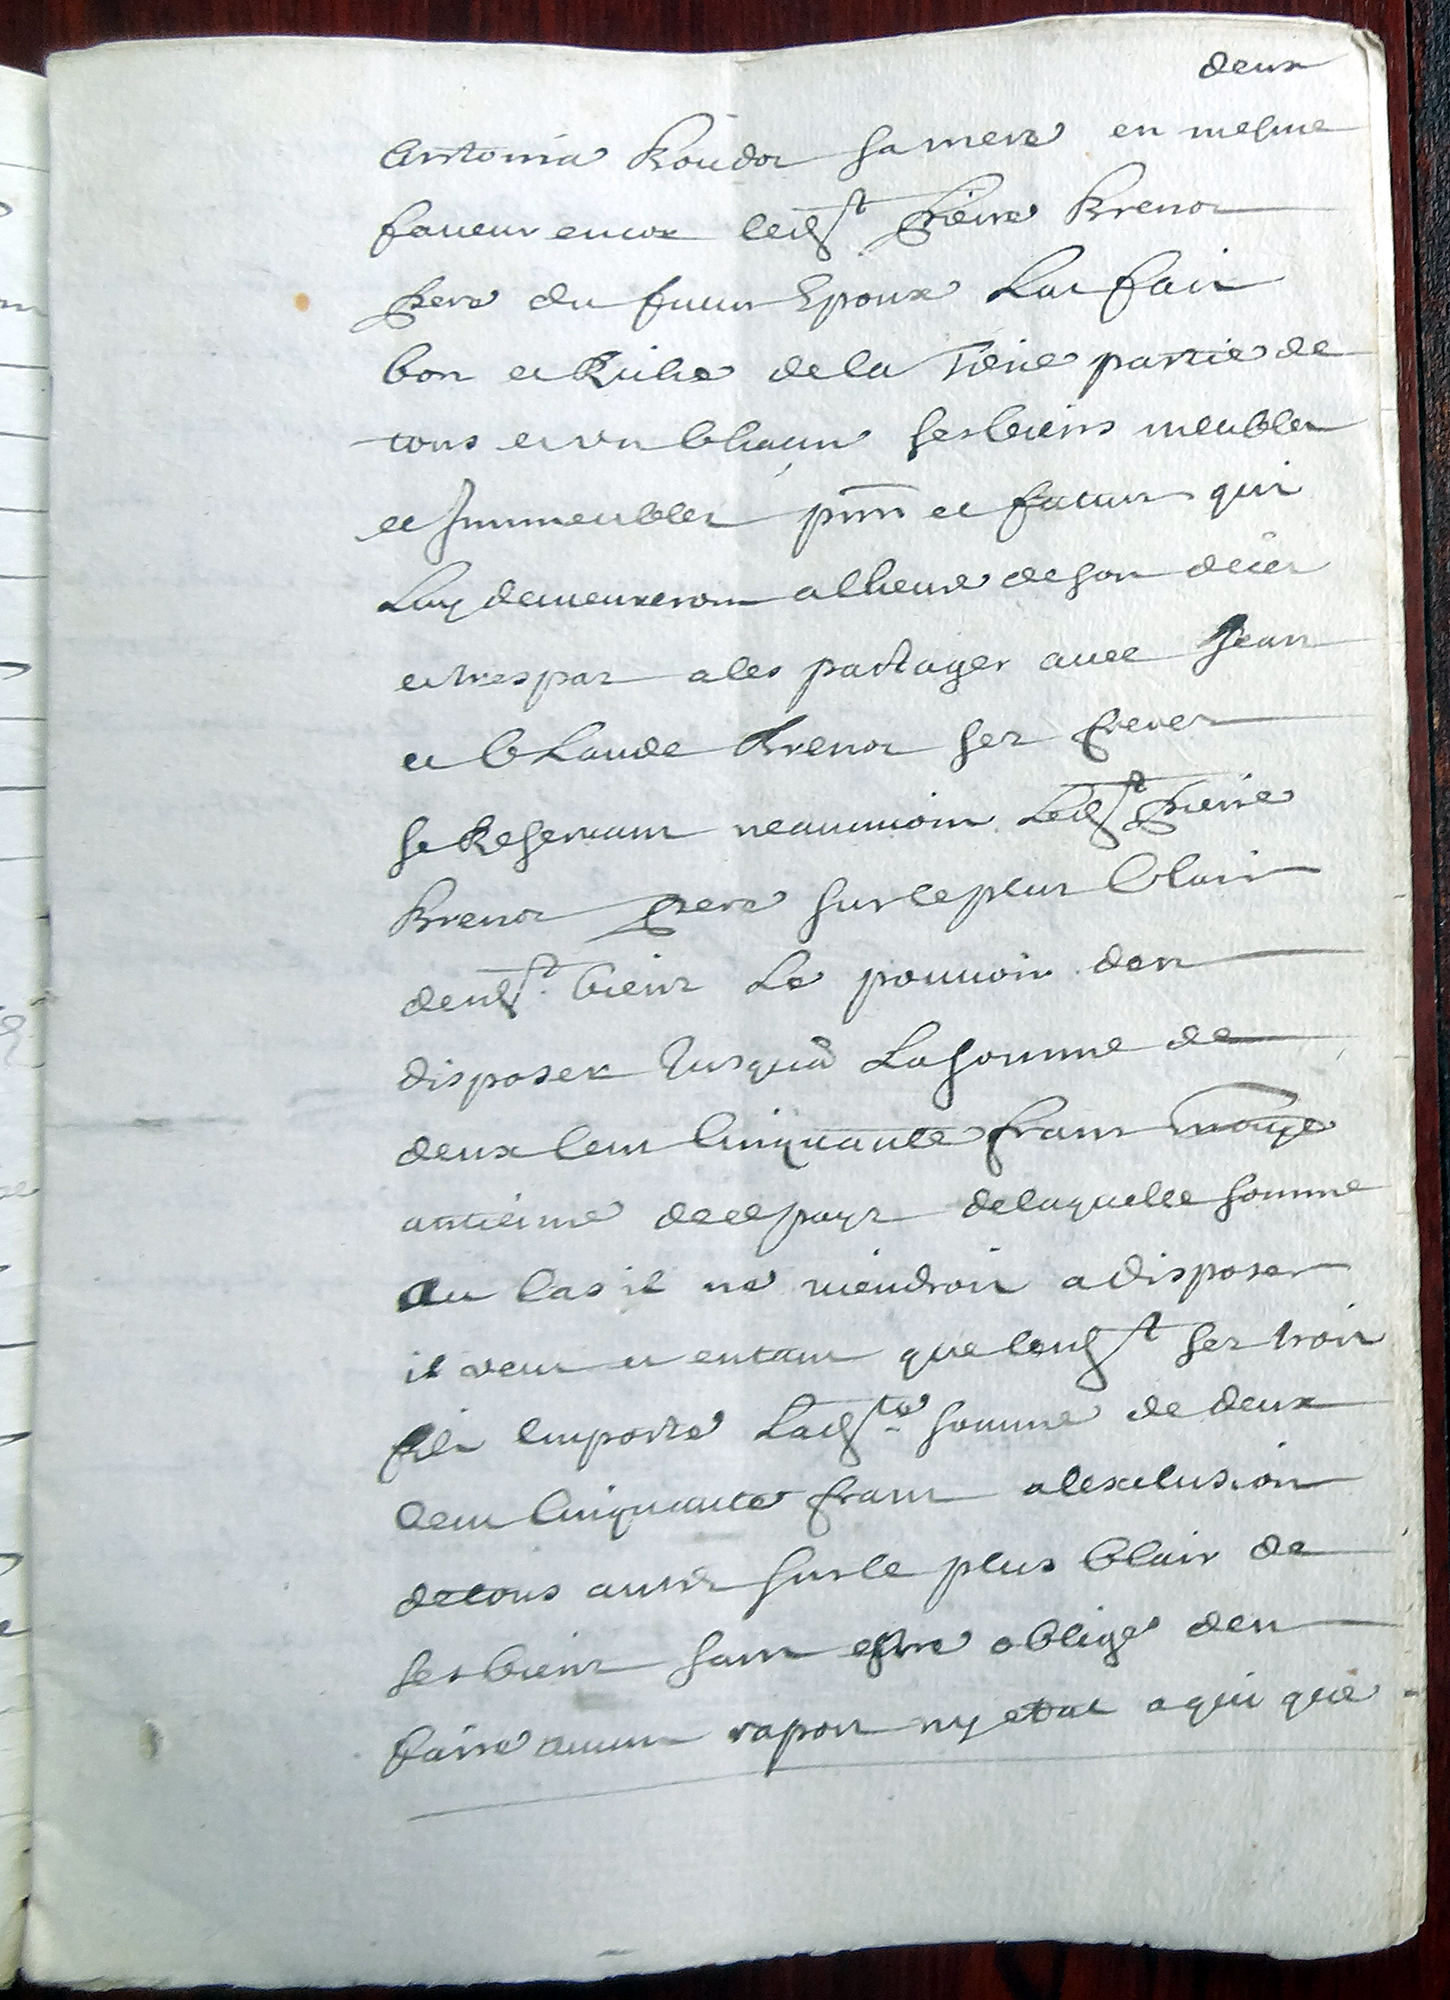 deux
Antonia Boudot sa mere en mesme
faueur encor led.st Pierre Brenot
pere du futur Epoux La fait
bon et Riche de la Tierce partie de
tous et vn Chacun ses biens meubles
et Immeubles pnt et futur qui
Luy demeureront a lheure de son deces
et trespas a les partager auec Jean
et Claude Brenot ses freres
se Reseruant neanmoins Led.st Pierre
Brenot pere sur le plus Clair
desd.st biens Le pouuoir den
disposer Jusqua La somme de
deux Cent Cinquante frans monoye
antienne de ce pays de laquelle somme
Au Cas il ne viendroit a disposer
il veut et entant que lesd.st ses trois
fils Emporte Lad.te somme de deux
Cent Cinquante frans a lexclusion
de tous autre sur le plus Clair de
ses biens sans estre oblige den
faire aucun raport ny etat a qui que